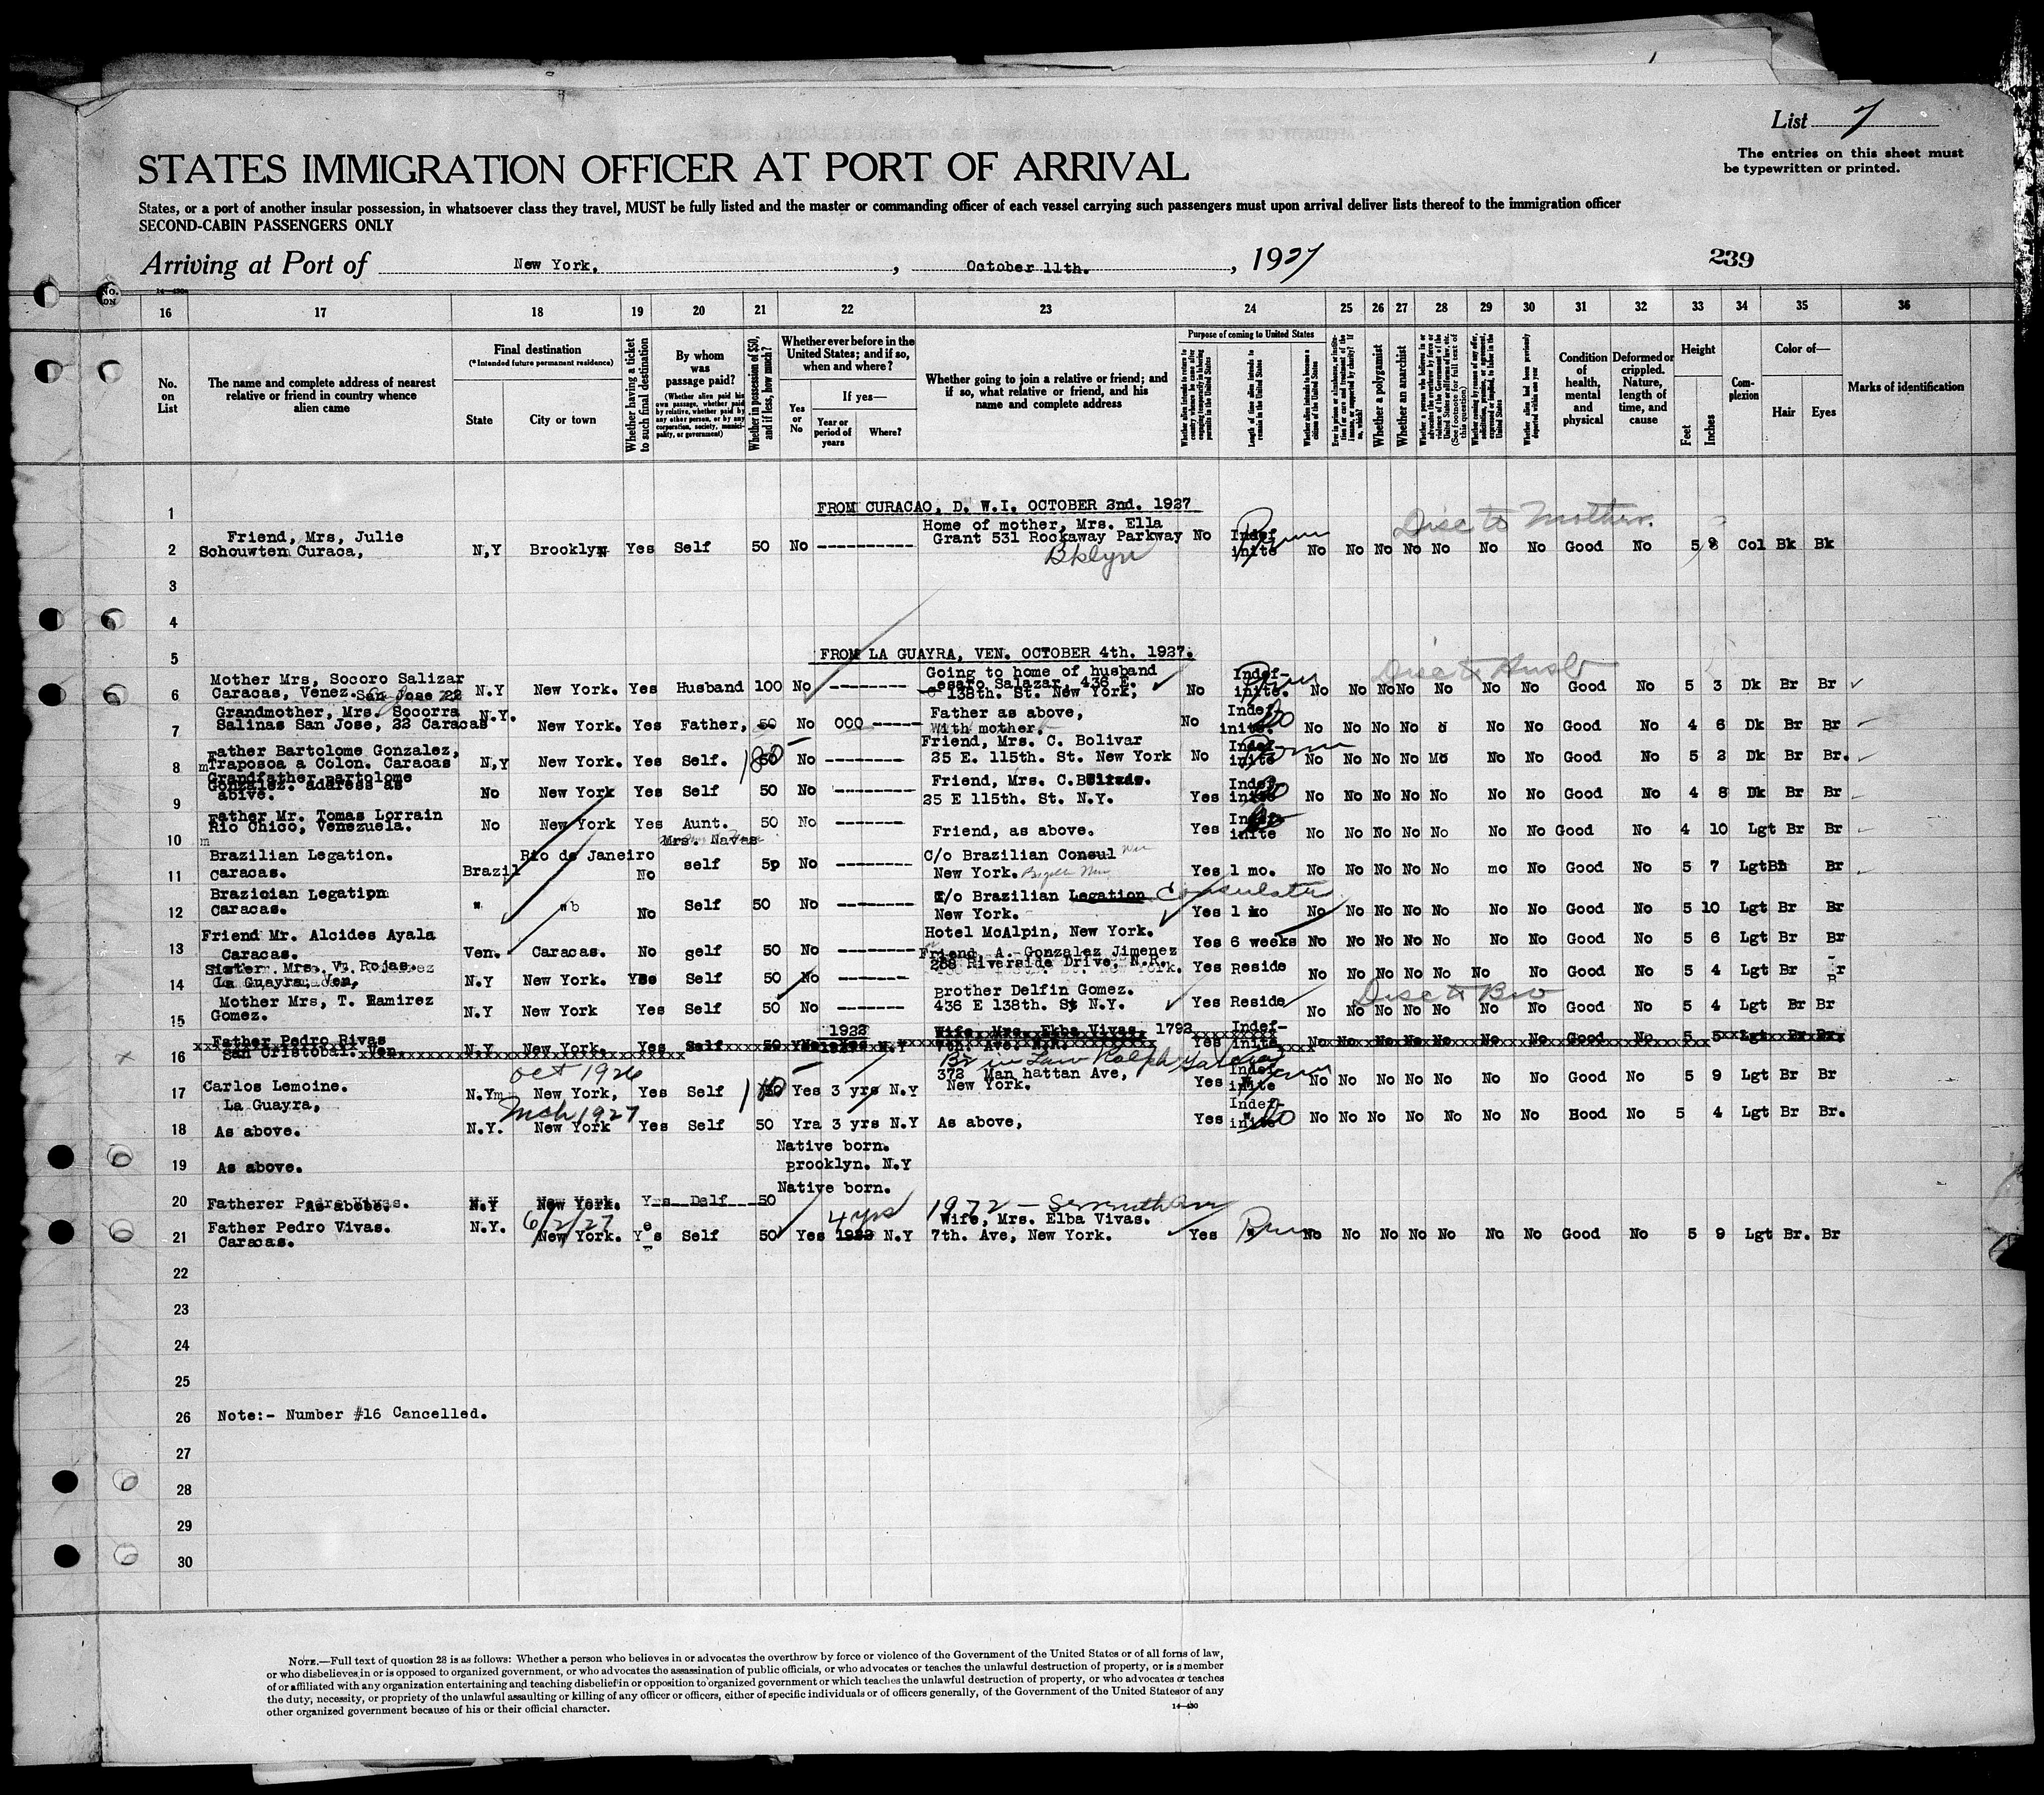 List 7
The entries on this sheet must
be typewritten or printed.
STATES IMMIGRATION OFFICER AT PORT OF ARRIVAL
States, or a port of another insular possession, in whatsoever class they travel, MUST be fully listed and the master or commanding officer of each vessel carrying such passengers must upon arrival deliver lists thereof to the immigration officer
SECOND-CABIN PASSENGERS ONLY
Arriving at Port of New York. , October 11th. , 1927
239
16 17 18 19 20 21 22 23 24 25 26 27 28 29 30 31 32 33 34 35 36
No. on List
The name and complete address of nearest relative or friend in country whence alien came
Final destination
(*Intended future permanent residence)
State
City or town
Whether having a ticket to such final destination
By whom was passage paid?
(Whether alien paid his own passage, whether paid by relative, whether paid by any other person, or by any corporation, society, municipality, or government)
Whether in possession of $50, and if less, how much?
Whether ever before in the United States; and if so, when and where?
Yes or No
If yes—
Year or period of years
Where?
Whether going to join a relative or friend; and if so, what relative or friend, and his name and complete address
Purpose of coming to United States
Length of time alien intends to remain in the United States
Whether alien intends to become a citizen of the United States
Whether a polygamist
Whether an anarchist
Condition of health, mental and physical
Deformed or crippled. Nature, length of time, and cause
Height
Feet
Inches
Complexion
Color of—
Hair
Eyes
Marks of identification
1 FROM CURACAO, D. W.I. OCTOBER 2nd. 1927
Disc to Mother.
Friend, Mrs, Julie Home of mother, Mrs. Ella Indef
2 Schouwten Curaca, N,Y Brooklyn Yes Self 50 No ---------- Grant 531 Rockaway Parkway No inite No No No No No No No Good No 5 8 Col Bk Bk
Bklyn
3
4
5 FROM LA GUAYRA, VEN. OCTOBER 4th. 1927.
Disc to Husb
Mother Mrs, Socoro Salizar Going to home of husband Indef-
6 Caracas, Venez. San Jose 22 N.Y New York. Yes Husband 100 No -------- esaro Salazar, 436 E. No inite. No No No No No No No Good No 5 3 Dk Br Br
138th. St. New York,
Grandmother, Mrs. Socorra N.Y. Father as above, Indef-
7 Salinas San Jose, 22 Caracas New York. Yes Father, 50 No 000 ----- With mother. No inite. No No No No No No Good No 4 6 Dk Br Br
Father Bartolome Gonzalez, Friend, Mrs. C. Bolivar Indef
8 Traposoa a Colon. Caracas N,Y New York. Yes Self. 180 No -------- 25 E. 115th. St. New York No inite No No No No Mo No No Good No 5 2 Dk Br Br.
Grandfather Bartolome
Gonzalez. address as Friend, Mrs. C. Indef-
9 abive. No New York Yes Self 50 No -------- 25 E 115th. St. N.Y. Yes inite No No No No No No No Good No 4 8 Dk Br Br
Father Mr. Tomas Lorrain
Rio Chico, Venezuela. No New York Yes Aunt. 50 No --------
10 Mrs. Navas Friend, as above. Yes inite No No No No No No No Good No 4 10 Lgt Br Br
Brazilian Legation. Rio de Janeiro C/o Brazilian Consul
11 Caracas. Brazil No self 5p No -------- New York. Yes 1 mo. No No No No No mo No Good No 5 7 Lgt Br
Brazician Legatipn /o Brazilian Legation Consulate
12 Caracas. " No Self 50 No -------- New York. Yes 1 No No No No No No No Good No 5 10 Lgt Br Br
Friend Mr. Alcides Ayala Hotel McAlpin, New York.
13 Caracas. Ven. Caracas. No gelf 50 No -------- Yes 6 weeks No No No No No No No Good No 5 6 Lgt Br Br
Sister Mrs. V. Rojas. Friend A. Gonzalez Jimenez
14 La Guayra, Ven, N.Y New York. Yes Self 50 No 258 Riverside Drive, N.R. Yes Reside No No No No No No No Good No 5 4 Lgt Br r
Disc to Bro
Mother Mrs, T. Ramirez Brother Delfin Gomez.
15 Gomez. N.Y New York Yes Self 50 No -------- 436 E 138th. St N.Y. Yes Reside No No No No No No No Good No 5 4 Lgt Br Br
Father Pedro Rivas 1922 Wife, Mrs. Ekba Vivas, 1792 Indef-
16 San Cristobal. Ven. N.Y New York. Yes Self 50 7th. Ave. Yes inite No No No No No No No Good No 5 5 Lgt Br Br.
Oct 1926 Br in Law Ralph
17 Carlos Lemoine. N.Y New York, Yes Self Yes 3 yrs N.Y 372 Manhattan Ave, New York. Yes inite No No No No No No No Good No 5 9 Lgt Br Br
La Guayra, Mch 1927 Indef-
18 As above. N.Y. New York Yes Self 50 Yra 3 yrs N.Y As above, Yes No No No No No No No Hood No 5 4 Lgt Br Br.
Native born.
19 As above. Brooklyn. N.Y
Native born.
20 Fatherer Pedro Vivas. As above. N.Y New York. Yrs Delf 50
6/2/27 4 yrs 1972 —
Father Pedro Vivas. N.Y. Wife, Mrs. Elba Vivas.
21 Caracas. New York. Yes Self 50 Yes 1923 N.Y 7th. Ave, New York. Yes No No No No No No No Good No 5 9 Lgt Br. Br
22
23
24
25
26 Note:- Number #16 Cancelled.
27
28
29
30
NOTE.—Full text of question 28 is as follows: Whether a person who believes in or advocates the overthrow by force or violence of the Government of the United States or of all forms of law,
or who disbelieves in or is opposed to organized government, or who advocates the assassination of public officials, or who advocates or teaches the unlawful destruction of property, or is a member
of or affiliated with any organization entertaining and teaching disbelief in or opposition to organized government or which teaches the unlawful destruction of property, or who advocates or teaches
the duty, necessity, or propriety of the unlawful assaulting or killing of any officer or officers, either of specific individuals or of officers generally, of the Government of the United States or of any
other organized government because of his or their official character.
14—430